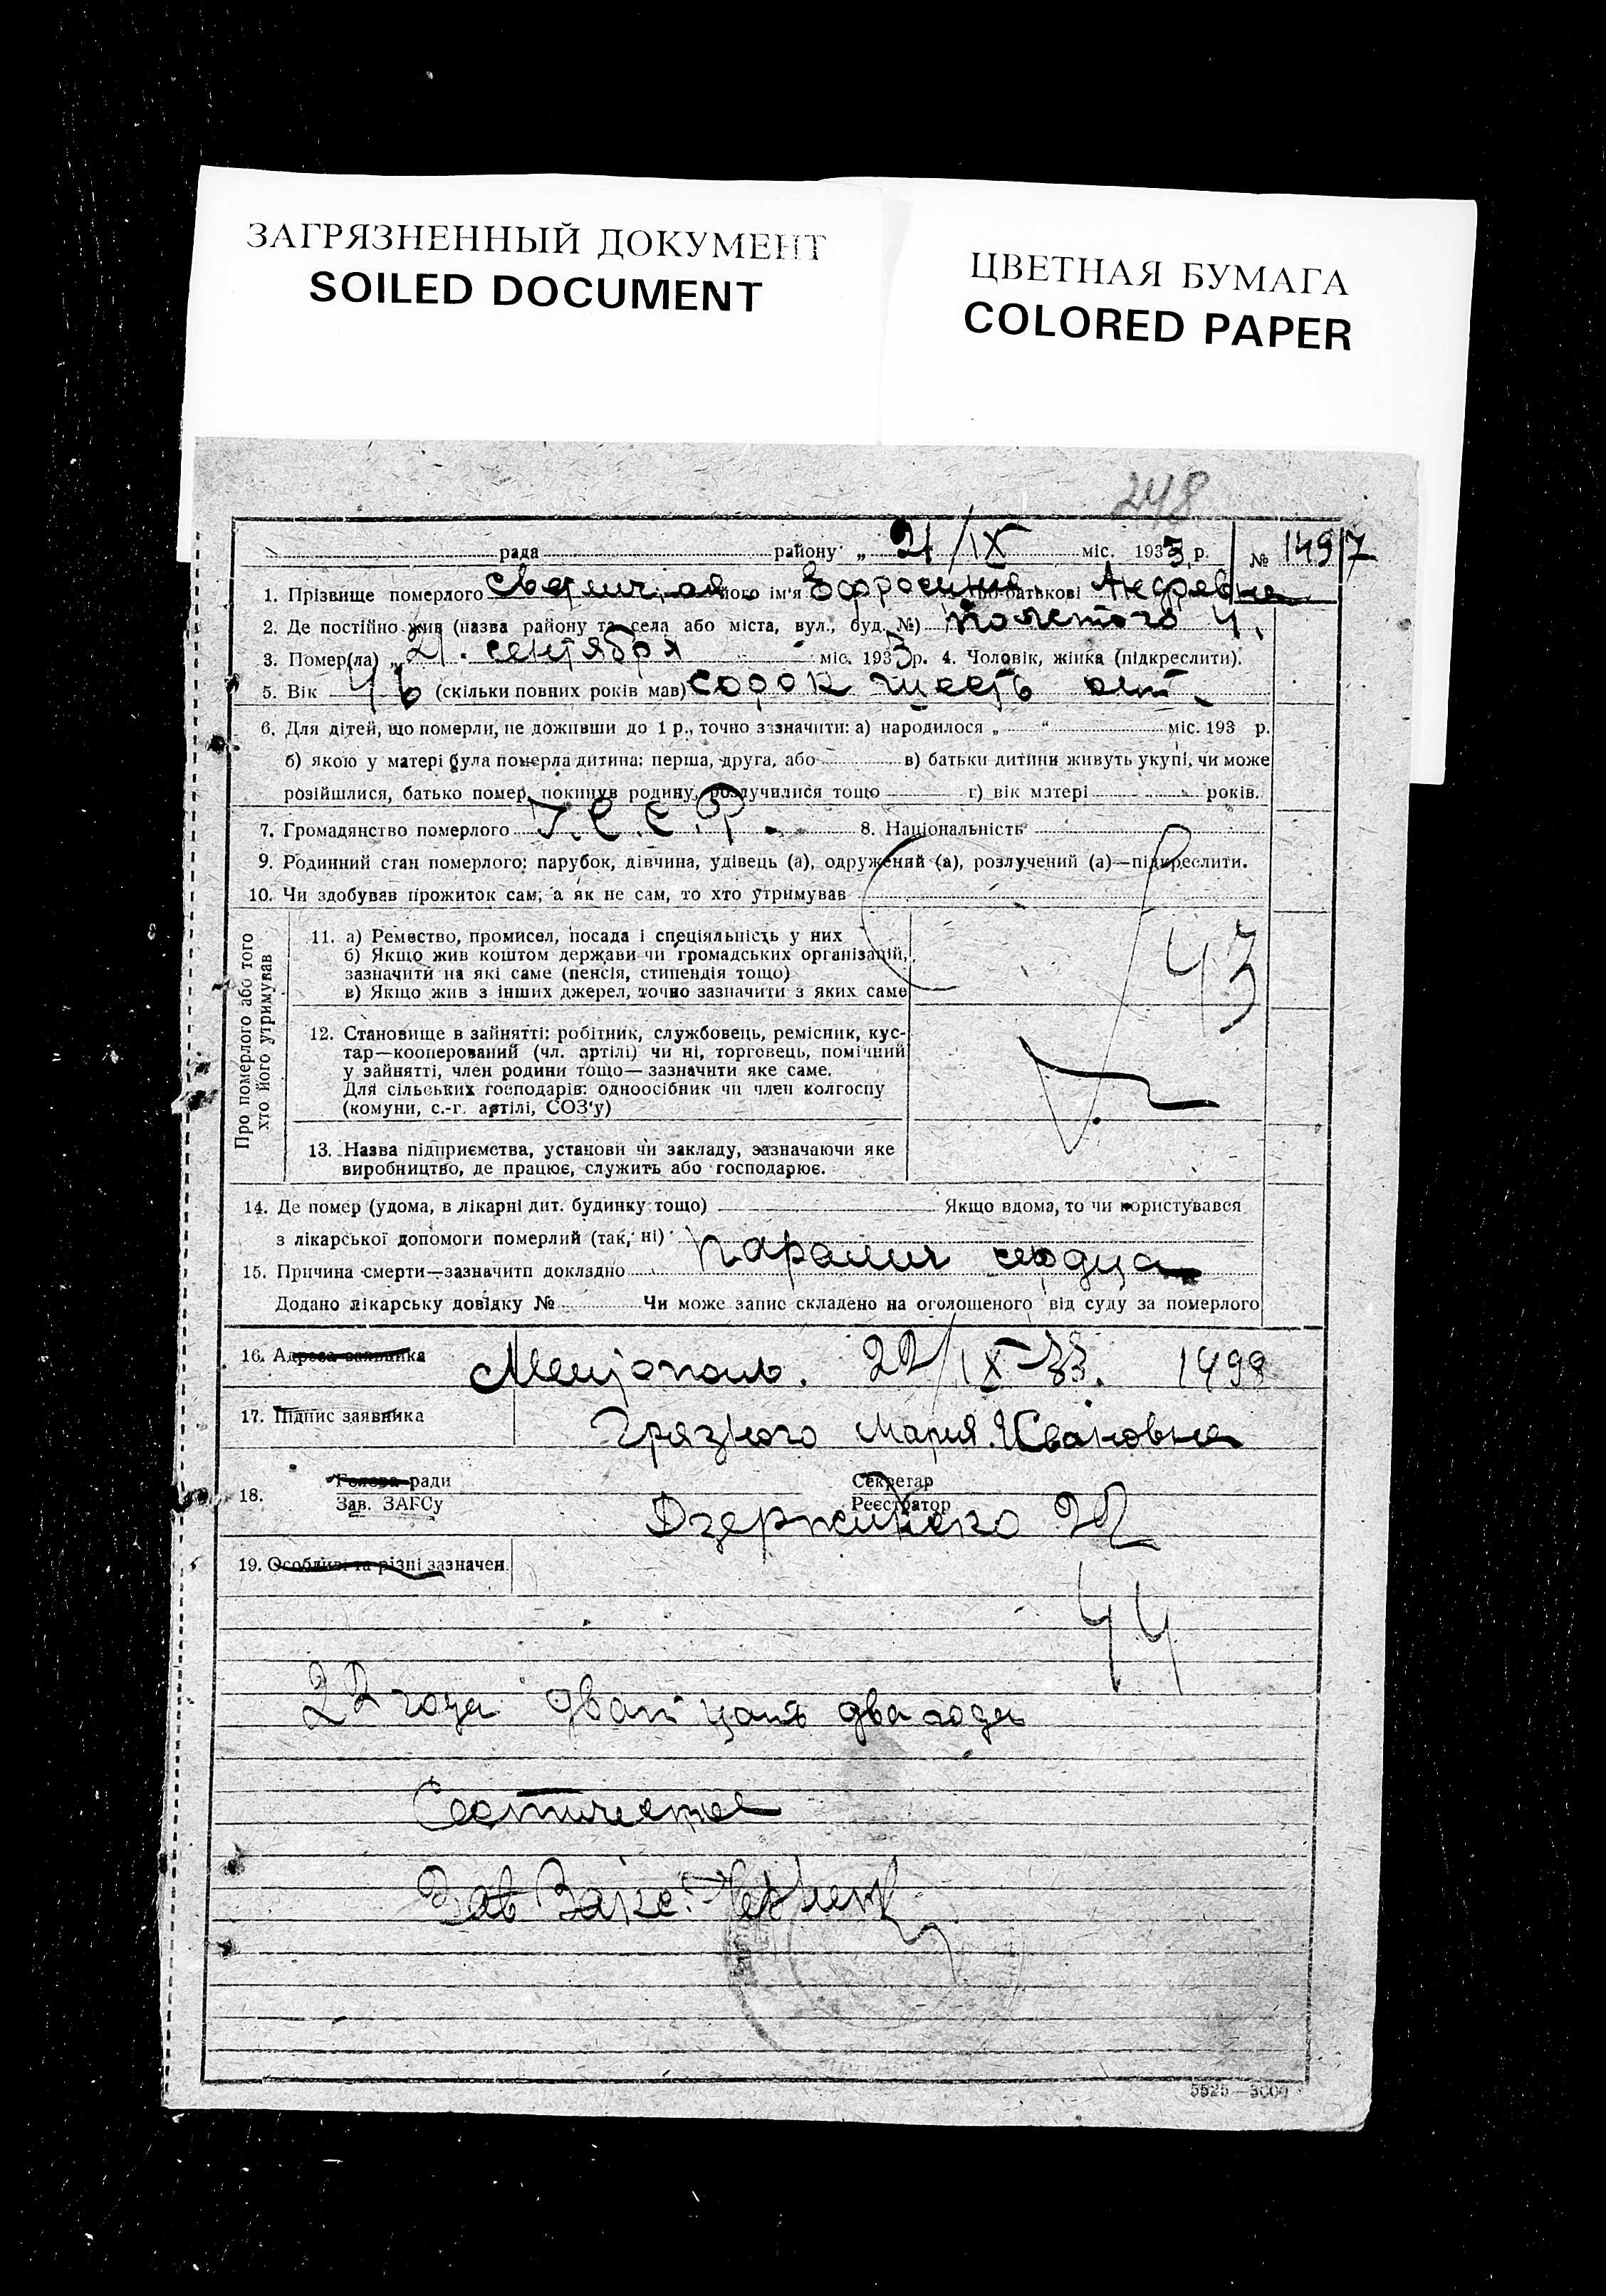 ЗАГРЯЗНЕННЫЙ ДОКУМЕНТ
SOILED DOCUMENT
ЦВЕТНАЯ БУМАГА
COLORED PAPER
248
рада району „ 21/IX міс. 1933 р. № 1497
1. Прізвище померлого його ім'я Ефросиния по батькові Андреевна
2. Де постійно жив (назва району та села або міста, вул., буд. №) 4.
3. Помер(ла) „21. сентября міс. 1933 р. 4. Чоловік, жінка (підкреслити).
5. Вік 46 (скільки повних років мав) сорок шесть лет.
6. Для дітей, що померли, не доживши до 1 р., точно зазначити: а) народилося „ “ міс. 193 р.
б) якою у матері була померла дитина: перша, друга, або в) батьки дитини живуть укупі, чи може
розійшлися, батько помер, покинув родину, розлучилися тощо г) вік матері років.
7. Громадянство померлого У.С.С.Р. 8. Національність
9. Родинний стан померлого: парубок, дівчина, удівець (а), одружений (а), розлучений (а)—підкреслити.
10. Чи здобував прожиток сам, а як не сам, то хто утримував
Про померлого або того
хто його утримував
11. а) Ремество, промисел, посада і спеціяльність у них
б) Якщо жив коштом держави чи громадських організацій,
зазначити на які саме (пенсія, стипендія тощо)
в) Якщо жив з інших джерел, точно зазначити з яких саме
43
12. Становище в зайнятті: робітник, службовець, ремісник, кус-
тар—кооперований (чл. артілі) чи ні, торговець, помічний
у зайнятті, член родини тощо—зазначити яке саме.
Для сільських господарів: одноосібник чи член колгоспу
(комуни, с.-г. артілі, СОЗ'у)
13. Назва підприємства, установи чи закладу, зазначаючи яке
виробництво, де працює, служить або господарює.
14. Де помер (удома, в лікарні дит. будинку тощо) Якщо вдома, то чи користувався
з лікарської допомоги померлий (так, ні)
15. Причина смерти—зазначити докладно паралич сердца
Додано лікарську довідку № Чи може запис складено на оголошеного від суду за померлого
16. Адреса заявника 22/IX-33. 1498
17. Підпис заявника Мария Ивановна
18. Голова ради Секретар
Зав. ЗАГСу Реєстратор
Дзержинско 22
19. Особливі та різні зазначен.
44
22 года двадцать два года
Зав Загс.
5525—3000